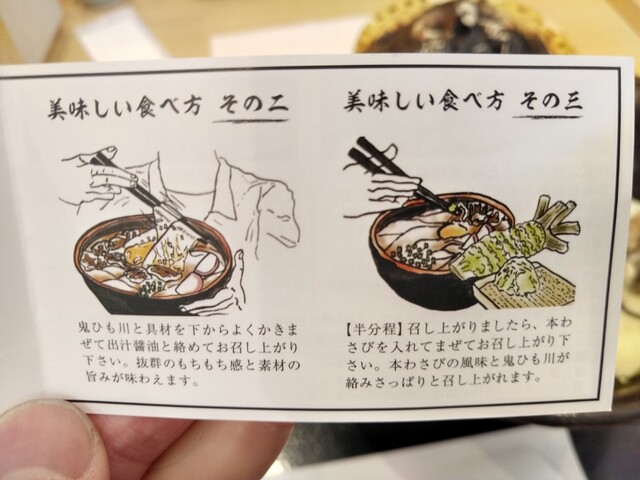 美味しい食べ方 その二
鬼ひも川と具材を下からよくかきま
ぜて出汁醤油と絡めてお召し上がり
下さい。抜群のもちもち感と素材の
旨みが味わえます。
美味しい食べ方 その三
【半分程】召し上がりましたら、本わ
さびを入れてまぜてお召し上がり下
さい。本わさびの風味と鬼ひも川が
絡みさっぱりと召し上がれます。